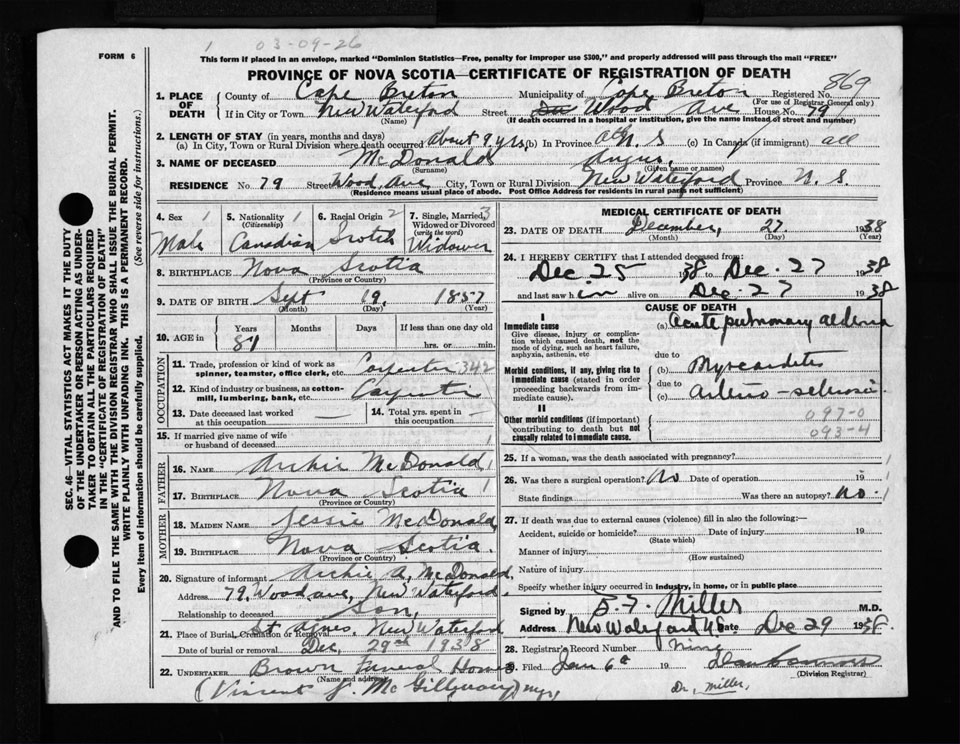 1 03-09-26
FORM 6
This form if placed in an envelope, marked "Dominion Statistics—Free, penalty for improper use $300," and properly addressed will pass through the mail "FREE"
PROVINCE OF NOVA SCOTIA—CERTIFICATE OF REGISTRATION OF DEATH
869
1. PLACE OF DEATH County of Cape Breton Municipality of Cape Breton Registered No.
(For use of Registrar General only)
If in City or Town New Waterford Street Wood Ave House No. 79
(Name) (If death occurred in a hospital or institution, give the name instead of street and number)
2. LENGTH OF STAY (in years, months and days)
(a) In City, Town or Rural Division where death occurred about 9 yrs. (b) In Province all N. S (c) In Canada (if immigrant) all
3. NAME OF DECEASED McDonald Angus,
(Surname) (Given name or names)
RESIDENCE No. 79 Street Wood Ave City, Town or Rural Division New Waterford Province N. S.
(Residence means usual place of abode. Post Office Address for residents in rural parts not sufficient)
SEC. 46—VITAL STATISTICS ACT MAKES IT THE DUTY
OF THE UNDERTAKER OR PERSON ACTING AS UNDER-
TAKER TO OBTAIN ALL THE PARTICULARS REQUIRED
IN THE "CERTIFICATE OF REGISTRATION OF DEATH"
AND TO FILE THE SAME WITH THE DIVISION REGISTRAR WHO SHALL ISSUE THE BURIAL PERMIT.
WRITE PLAINLY WITH UNFADING INK. THIS IS A PERMANENT RECORD.
Every item of information should be carefully supplied. (See reverse side for instructions.)
4. Sex 1 5. Nationality 1 6. Racial Origin 2 7. Single, Married, 3
(Citizenship) Widowed or Divorced
(write the word)
Male Canadian Scotch Widower
8. BIRTHPLACE Nova Scotia
(Province or Country)
9. DATE OF BIRTH Sept 19, 1857
(Month) (Day) (Year)
10. AGE in Years Months Days If less than one day old
81 hrs. or min.
OCCUPATION
11. Trade, profession or kind of work as
spinner, teamster, office clerk, etc. Carpenter 342
12. Kind of industry or business, as cotton-
mill, lumbering, bank, etc.
13. Date deceased last worked at this occupation —
14. Total yrs. spent in this occupation —
15. If married give name of wife
or husband of deceased 1
FATHER
16. NAME Archie McDonald 1
17. BIRTHPLACE Nova Scotia 1
MOTHER
18. MAIDEN NAME Jessie McDonald
19. BIRTHPLACE Nova Scotia.
(Province or Country)
20. Signature of informant Archie A. McDonald,
Address 79, Wood ave, New Waterford.
Relationship to deceased Son,
21. Place of Burial, Cremation or Removal St. Agnes, New Waterford
Date of burial or removal Dec, 29th 1938
22. UNDERTAKER Brown Funeral Home
(Name and address)
(Vincent J. McGillivray) mgr,
MEDICAL CERTIFICATE OF DEATH
23. DATE OF DEATH December, 27. 1938
(Month) (Day) (Year)
24. I HEREBY CERTIFY that I attended deceased from:
Dec 25 1938 to Dec. 27 1938
and last saw him alive on Dec. 27 1938
CAUSE OF DEATH
I
Immediate cause (a) Acute pulmonary oedema
Give disease, injury or complica-
tion which caused death, not the
mode of dying, such as heart failure,
asphyxia, asthenia, etc
due to
Morbid conditions, if any, giving rise to (b) Myocarditis
immediate cause (stated in order due to
proceeding backwards from im- (c)
mediate cause).
II
Other morbid conditions (if important) 097-0
contributing to death but not 093-4
causally related to immediate cause.
25. If a woman, was the death associated with pregnancy? 1
26. Was there a surgical operation? No Date of operation 19 1
State findings Was there an autopsy? no. 1
27. If death was due to external causes (violence) fill in also the following:—
Accident, suicide or homicide? Date of injury 19
(State which)
Manner of injury
(How sustained)
Nature of injury
Specify whether injury occurred in industry, in home, or in public place
Signed by Miller M.D.
Address New Waterford N.S. Date Dec 29 1938.
28. Registrar's Record Number nine
29. Filed Jan 6th 19
(Division Registrar)
Dr, Miller,